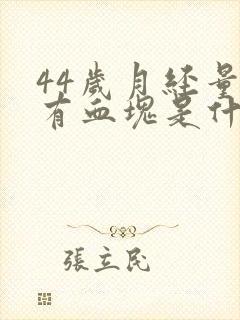 44歲月經量
有血塊是什
張立民